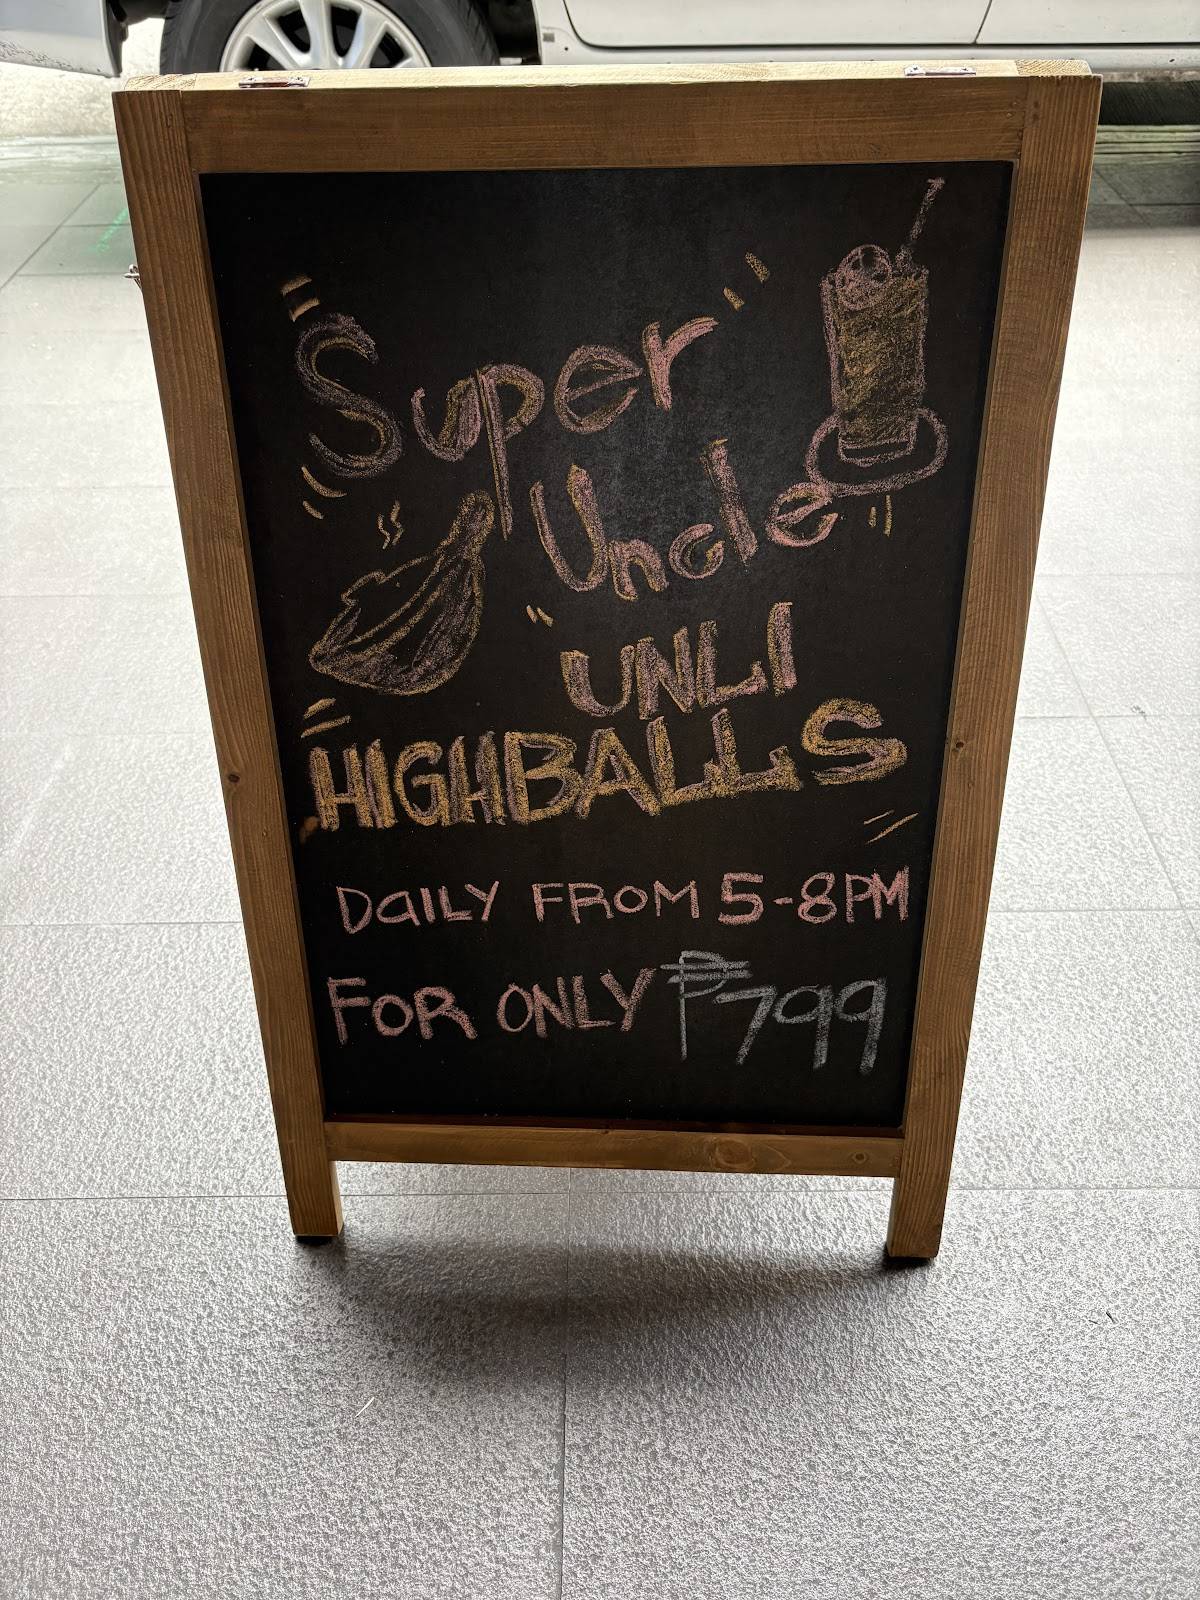 Super
Uncle
UNLI
HIGHBALLS
DAILY FROM 5-8PM
FOR ONLY ₱799